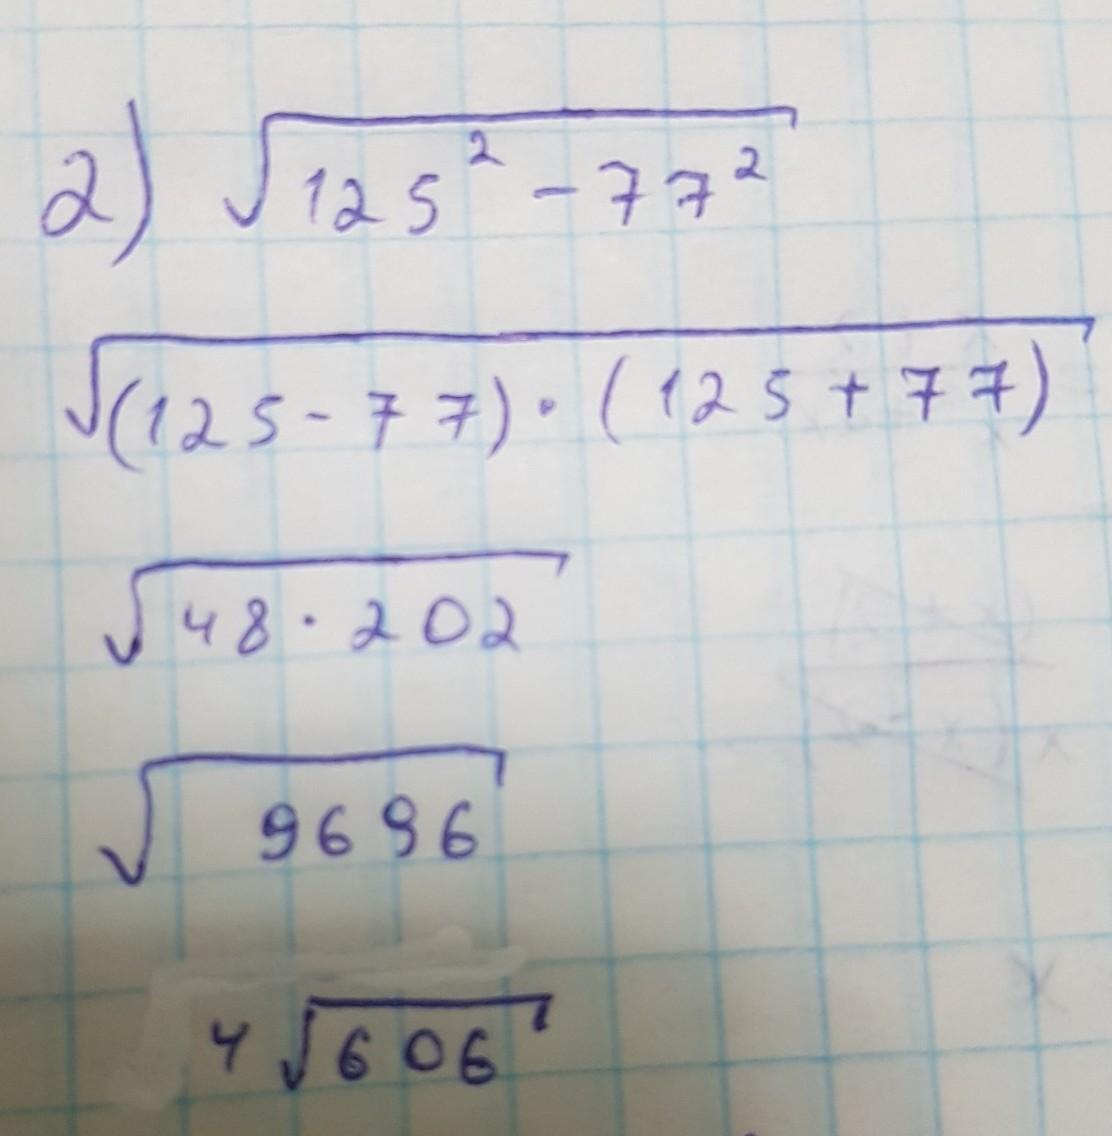 2) √125² - 77²
√(125 - 77) · (125 + 77)
√48 · 202
√9696
4√606